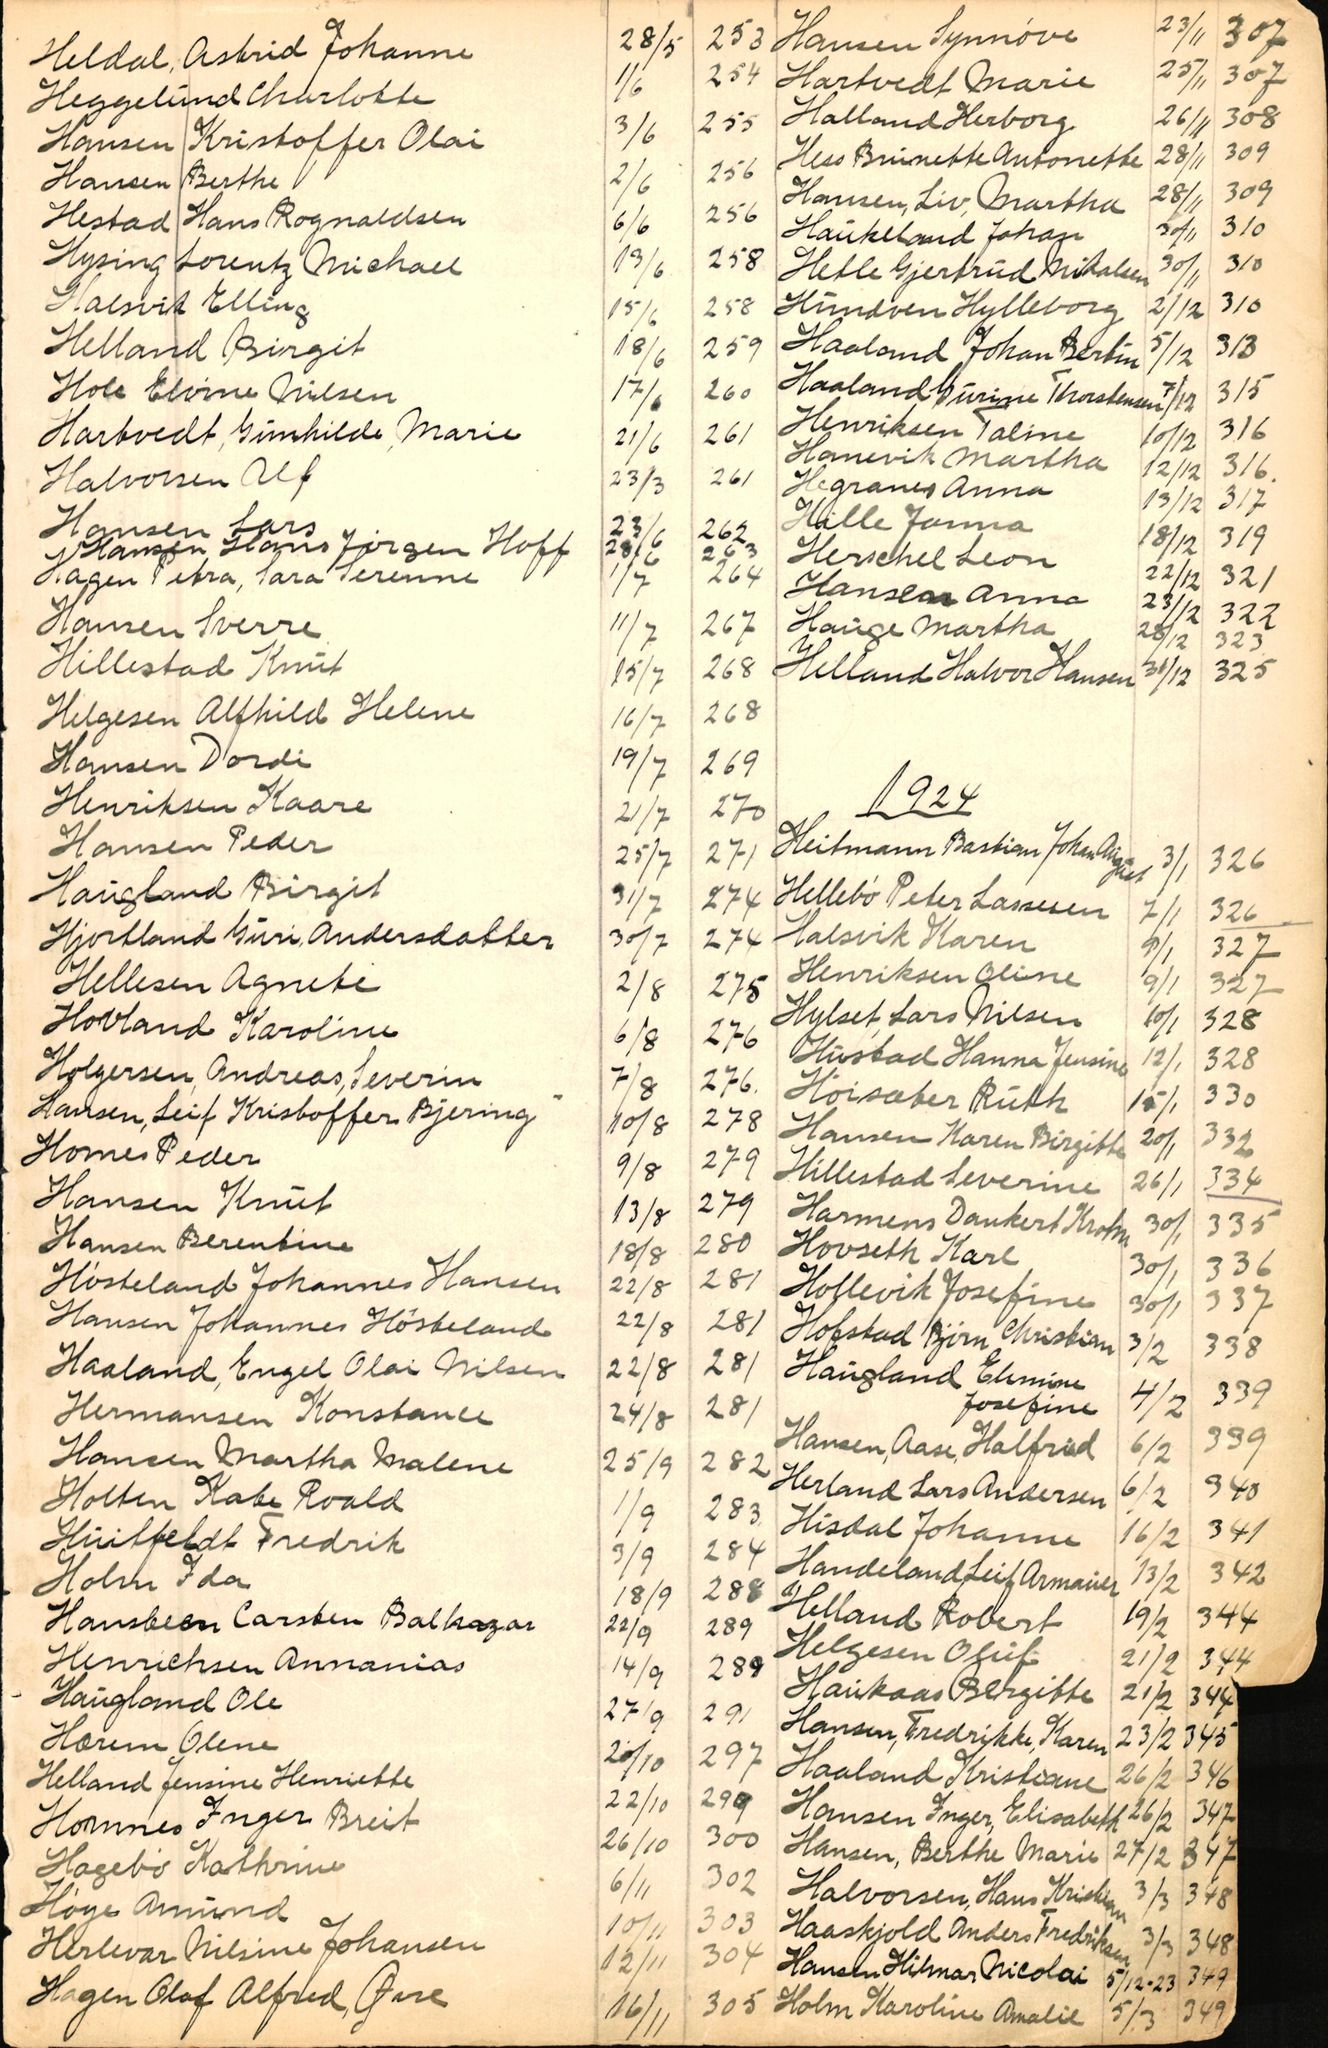 Heldal, Astrid Johanne 28/5 253
Heggelund Charlotte 1/6 254
Hansen Kristoffer Olai 3/6 255
Hansen Berthe 2/6 256
Hestad Hans Rognaldsen 6/6 256
Hysing Lorentz Michael 13/6 258
Halsvik Elling 15/6 258
Helland Birgit 18/6 259
Hole Elvine Nilsen 17/6 260
Hartvedt, Gunhilde, Marie 21/6 261
Halvorsen Alf 23/3 261
Hansen Lars 23/6 262
Hansen Hans Jørgen Hoff 28/6 263
Hagen Petra, Sara Serenne 1/7 264
Hansen Sverre 11/7 267
Hillestad Knut 15/7 268
Helgesen Alfhild Helene 16/7 268
Hansen Dordi 19/7 269
Henriksen Kaare 21/7 270
Hansen Peder 25/7 271
Haugland Birgit 31/7 274
Hjortland Guri Andersdatter 30/7 274
Hellesen Agnete 2/8 275
Hovland Karoline 6/8 276
Holgersen, Andreas, Severin 7/8 276.
Hansen, Leif Kristoffer Bjering 10/8 278
Homes Peder 9/8 279
Hansen Knut 13/8 279
Hansen Berentine 18/8 280
Hösteland Johannes Hansen 22/8 281
Hansen Johannes Hösteland 22/8 281
Haaland, Engel Olai Nilsen 22/8 281
Hermansen Konstance 24/8 281
Hansen Martha Malene 25/9 282
Holten Kate Roald 1/9 283
Huitfeldt Fredrik 3/9 284
Holm Ida 18/9 288
Hansteen Carsten Balthazar 22/9 289
Henrichsen Annanias 14/9 289
Haugland Ole 27/9 291
Hærem Olene 20/10 297
Helland Jensine Henriette 22/10 299
Hommes Inger Breit 26/10 300
Hagebö Kathrine 6/11 302
Høye Amund 10/11 303
Herlevar Nilsine Johansen 12/11 304
Hagen Olaf Alfred, Øvre 16/11 305
Hansen Synnöve 23/11 307
Hartvedt Marie 25/11 307
Halland Herborg 26/11 308
Hess Brunette Antonette 28/11 309
Hansen, Liv, Martha 28/11 309
Haukeland Johan 30/11 310
Hetle Gjertrud Nikolsen 30/11 310
Hundven Hylleborg 2/12 310
Haaland Johan Bertin 5/12 313
Haaland Gurine Thorstensen 7/12 315
Henriksen Taline 10/12 316
Hanevik Martha 12/12 316.
Hegranes Anna 13/12 317
Hille Janna 18/12 319
Herschel Leon 22/12 321
Hansen Anna 23/12 322
Hauge Martha 28/12 323
Helland Halvor Hansen 31/12 325
1924
Heitmann Bastian Johan August 3/1 326
Hellebö Peter Lassesen 7/1 326
Halsvik Karen 9/1 327
Henriksen Oline 9/1 327
Hylset, Lars Nilsen 10/1 328
Hustad Hanna Jensine 12/1 328
Höisæter Ruth 15/1 330
Hansen Karen Birgitte 20/1 332
Hillestad Severine 26/1 334
Harmens Dankert Krohn 30/1 335
Hovseth Karl 30/1 336
Hollevik Josefine 30/1 337
Hofstad Björn Christian 3/2 338
Haugland Elemine
Josefine 4/2 339
Hansen, Aase, Halfrid 6/2 339
Herland Lars Andersen 6/2 340
Hisdal Johanne 16/2 341
Handeland Leif Armauer 13/2 342
Helland Robert 19/2 344
Helgesen Oluf 21/2 344
Haukaas Bergitte 21/2 344
Hansen, Fredrikke, Karen 23/2 345
Haaland Kristiane 26/2 346
Hansen Inger, Elisabeth 26/2 347
Hansen, Berthe Marie 27/2 347
Halvorsen, Hans Kristian 3/3 348
Haaskjold Anders Fredriksen 3/3 348
Hansen Hilmar Nicolai 5/12-23 349
Holm Karoline Amalie 5/3 349